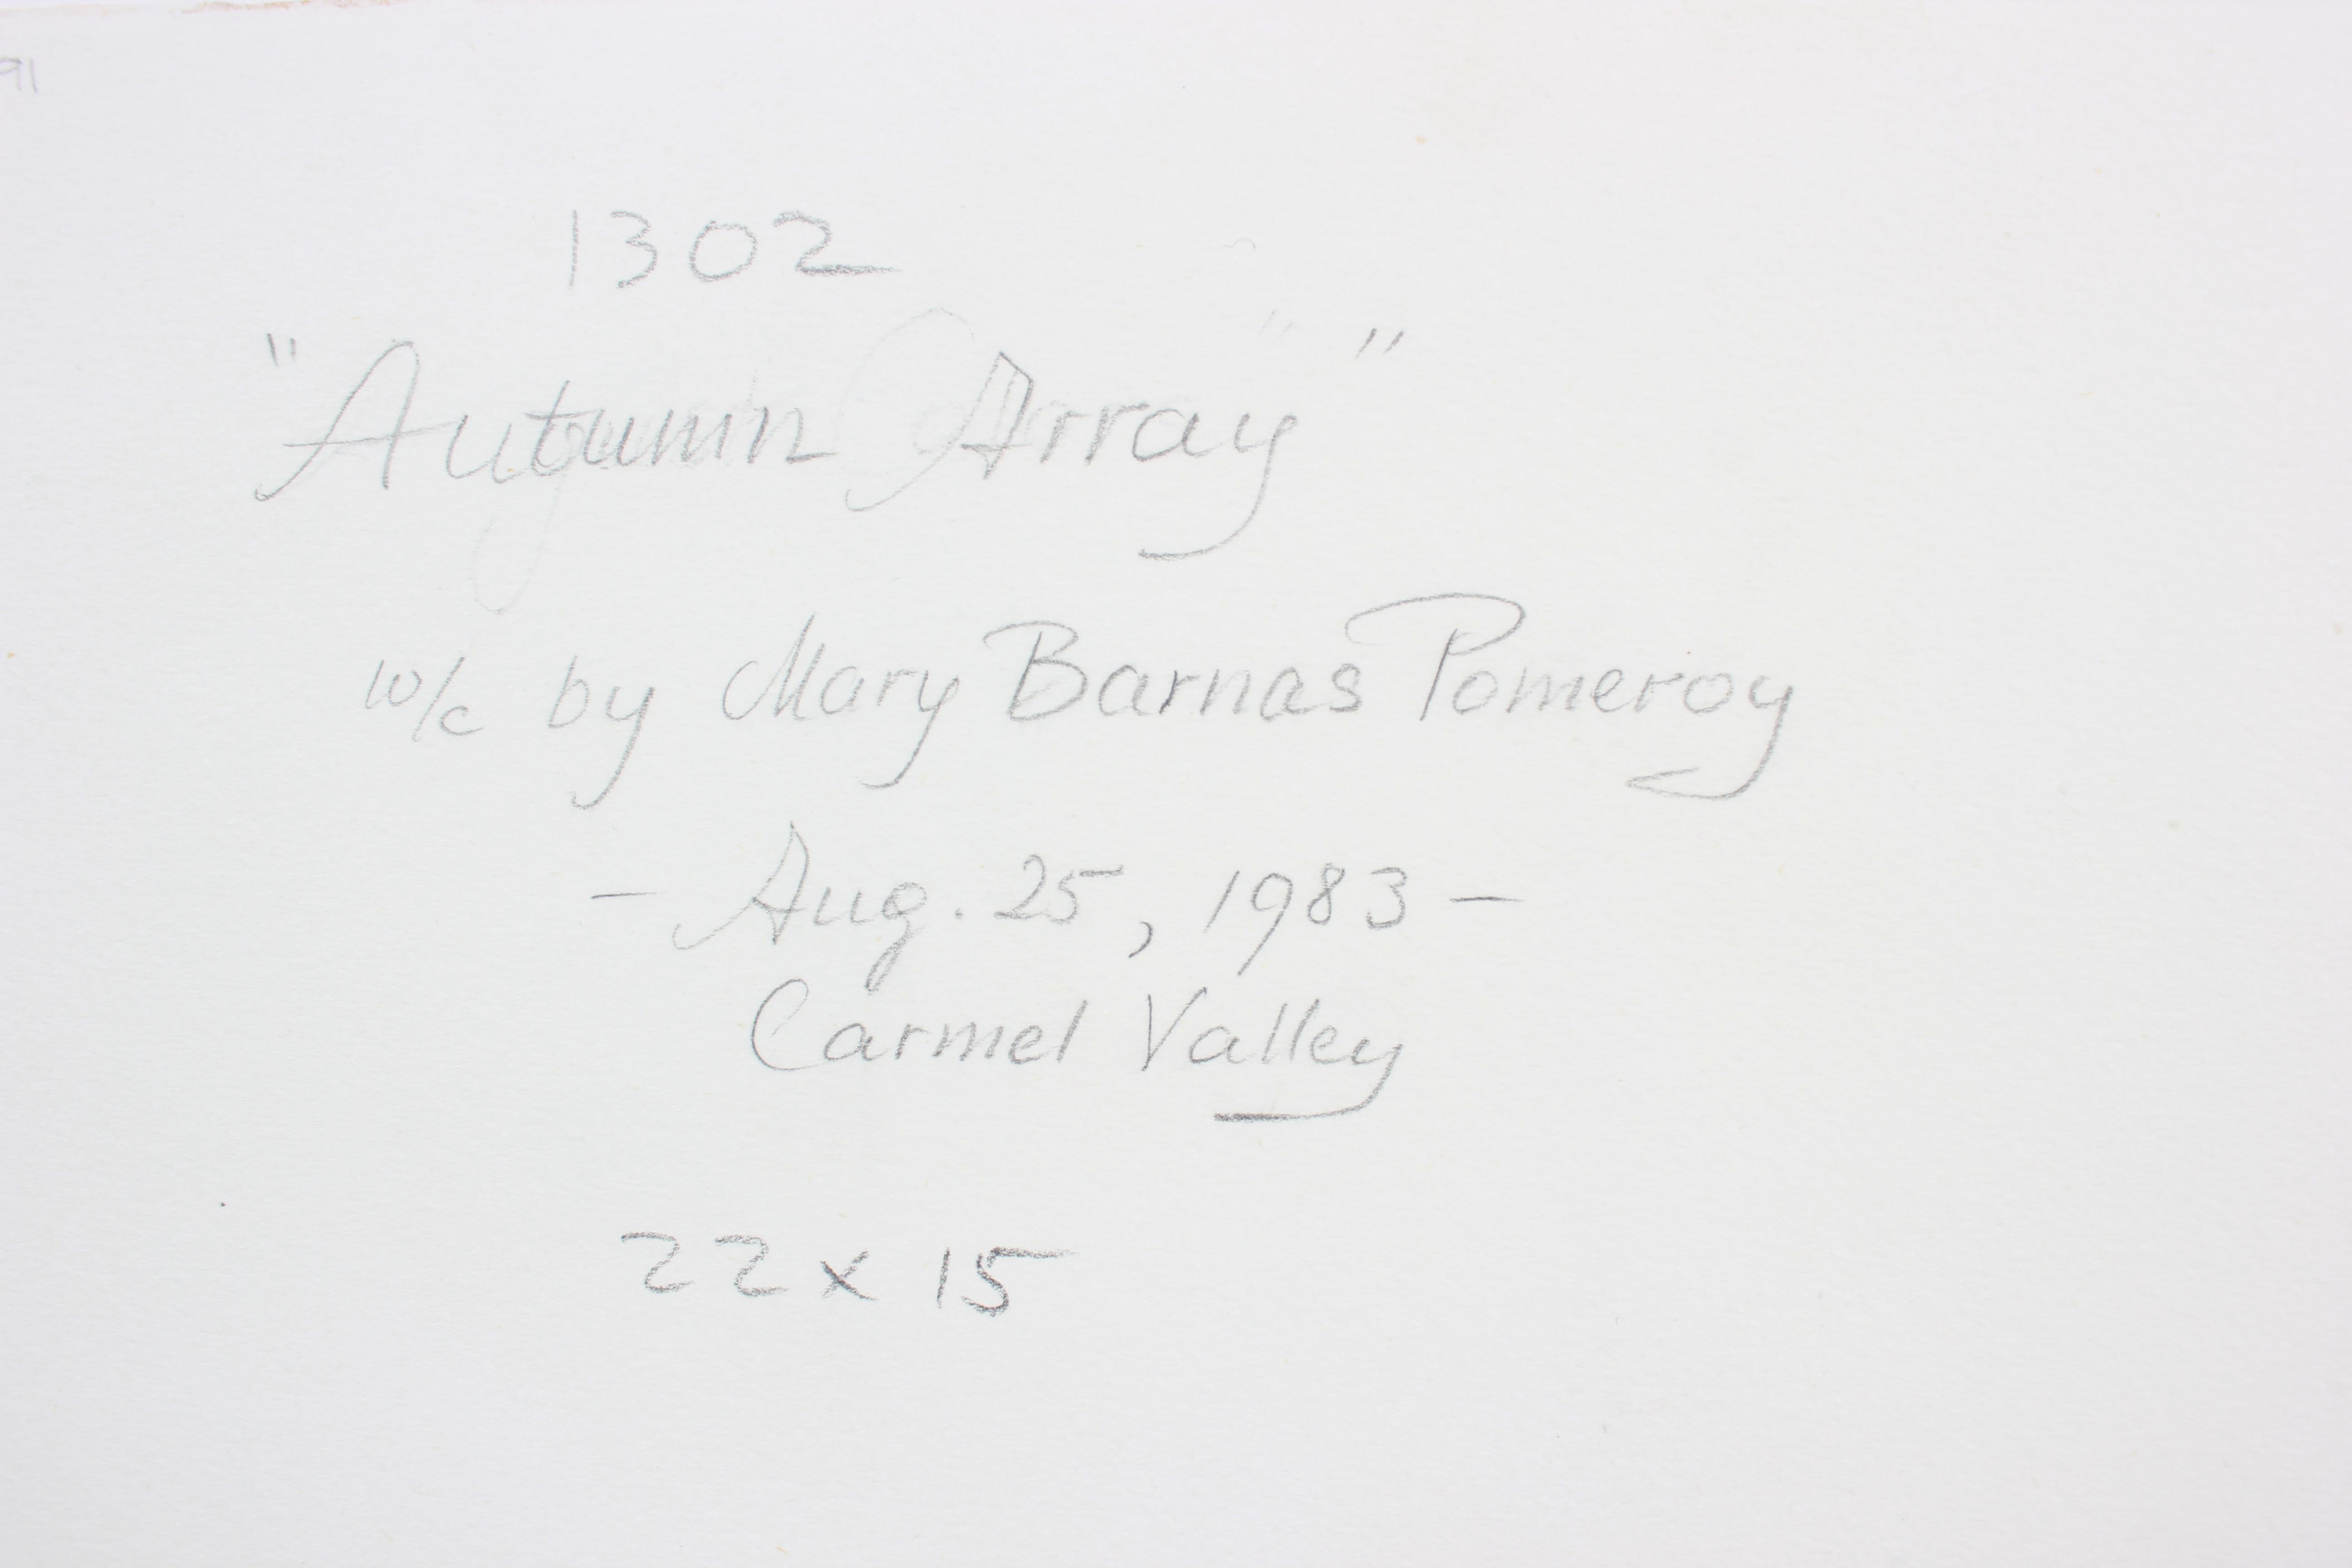 91
1302
"Autumn Array"
w/c by Mary Barnas Pomeroy
- Aug. 25, 1983 -
Carmel Valley
22 x 15